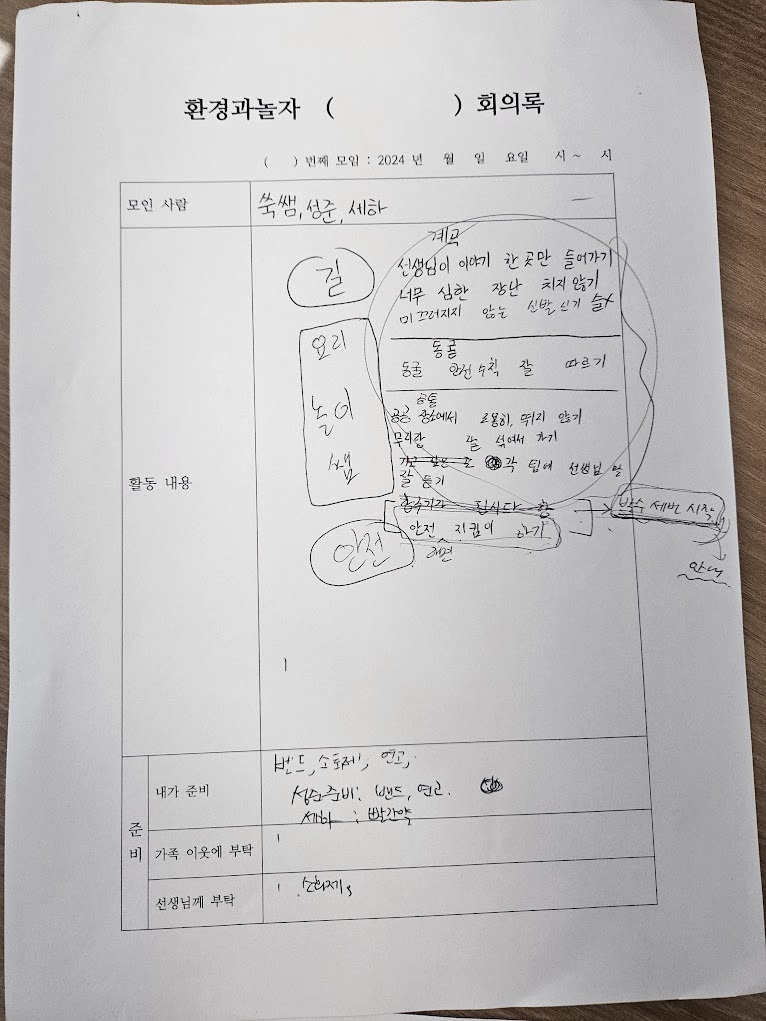 환경과놀자 (          ) 회의록
(   ) 번째 모임 : 2024 년   월   일   요일   시 ~   시
모인 사람
쑥쌤, 성준, 세하
활동 내용
길
요리
놀이
쌤
안전
계곡
선생님이 이야기 한 곳만 들어가기
너무 심한 장난 치지 않기
미끄러지지 않는 신발 신기
동굴
동굴 안전수칙 잘 따르기
공통
공공 장소에서 조용히, 뛰지 않기
무리랑 잘 섞여서 가기
각 팀에 선생님 말
잘 듣기
안전 지킴이 하기
박수 세번 시작
안내
준비
내가 준비
밴드, 소독제, 연고,
성준준비: 밴드, 연고.
세하 : 빨간약
가족 이웃에 부탁
선생님께 부탁